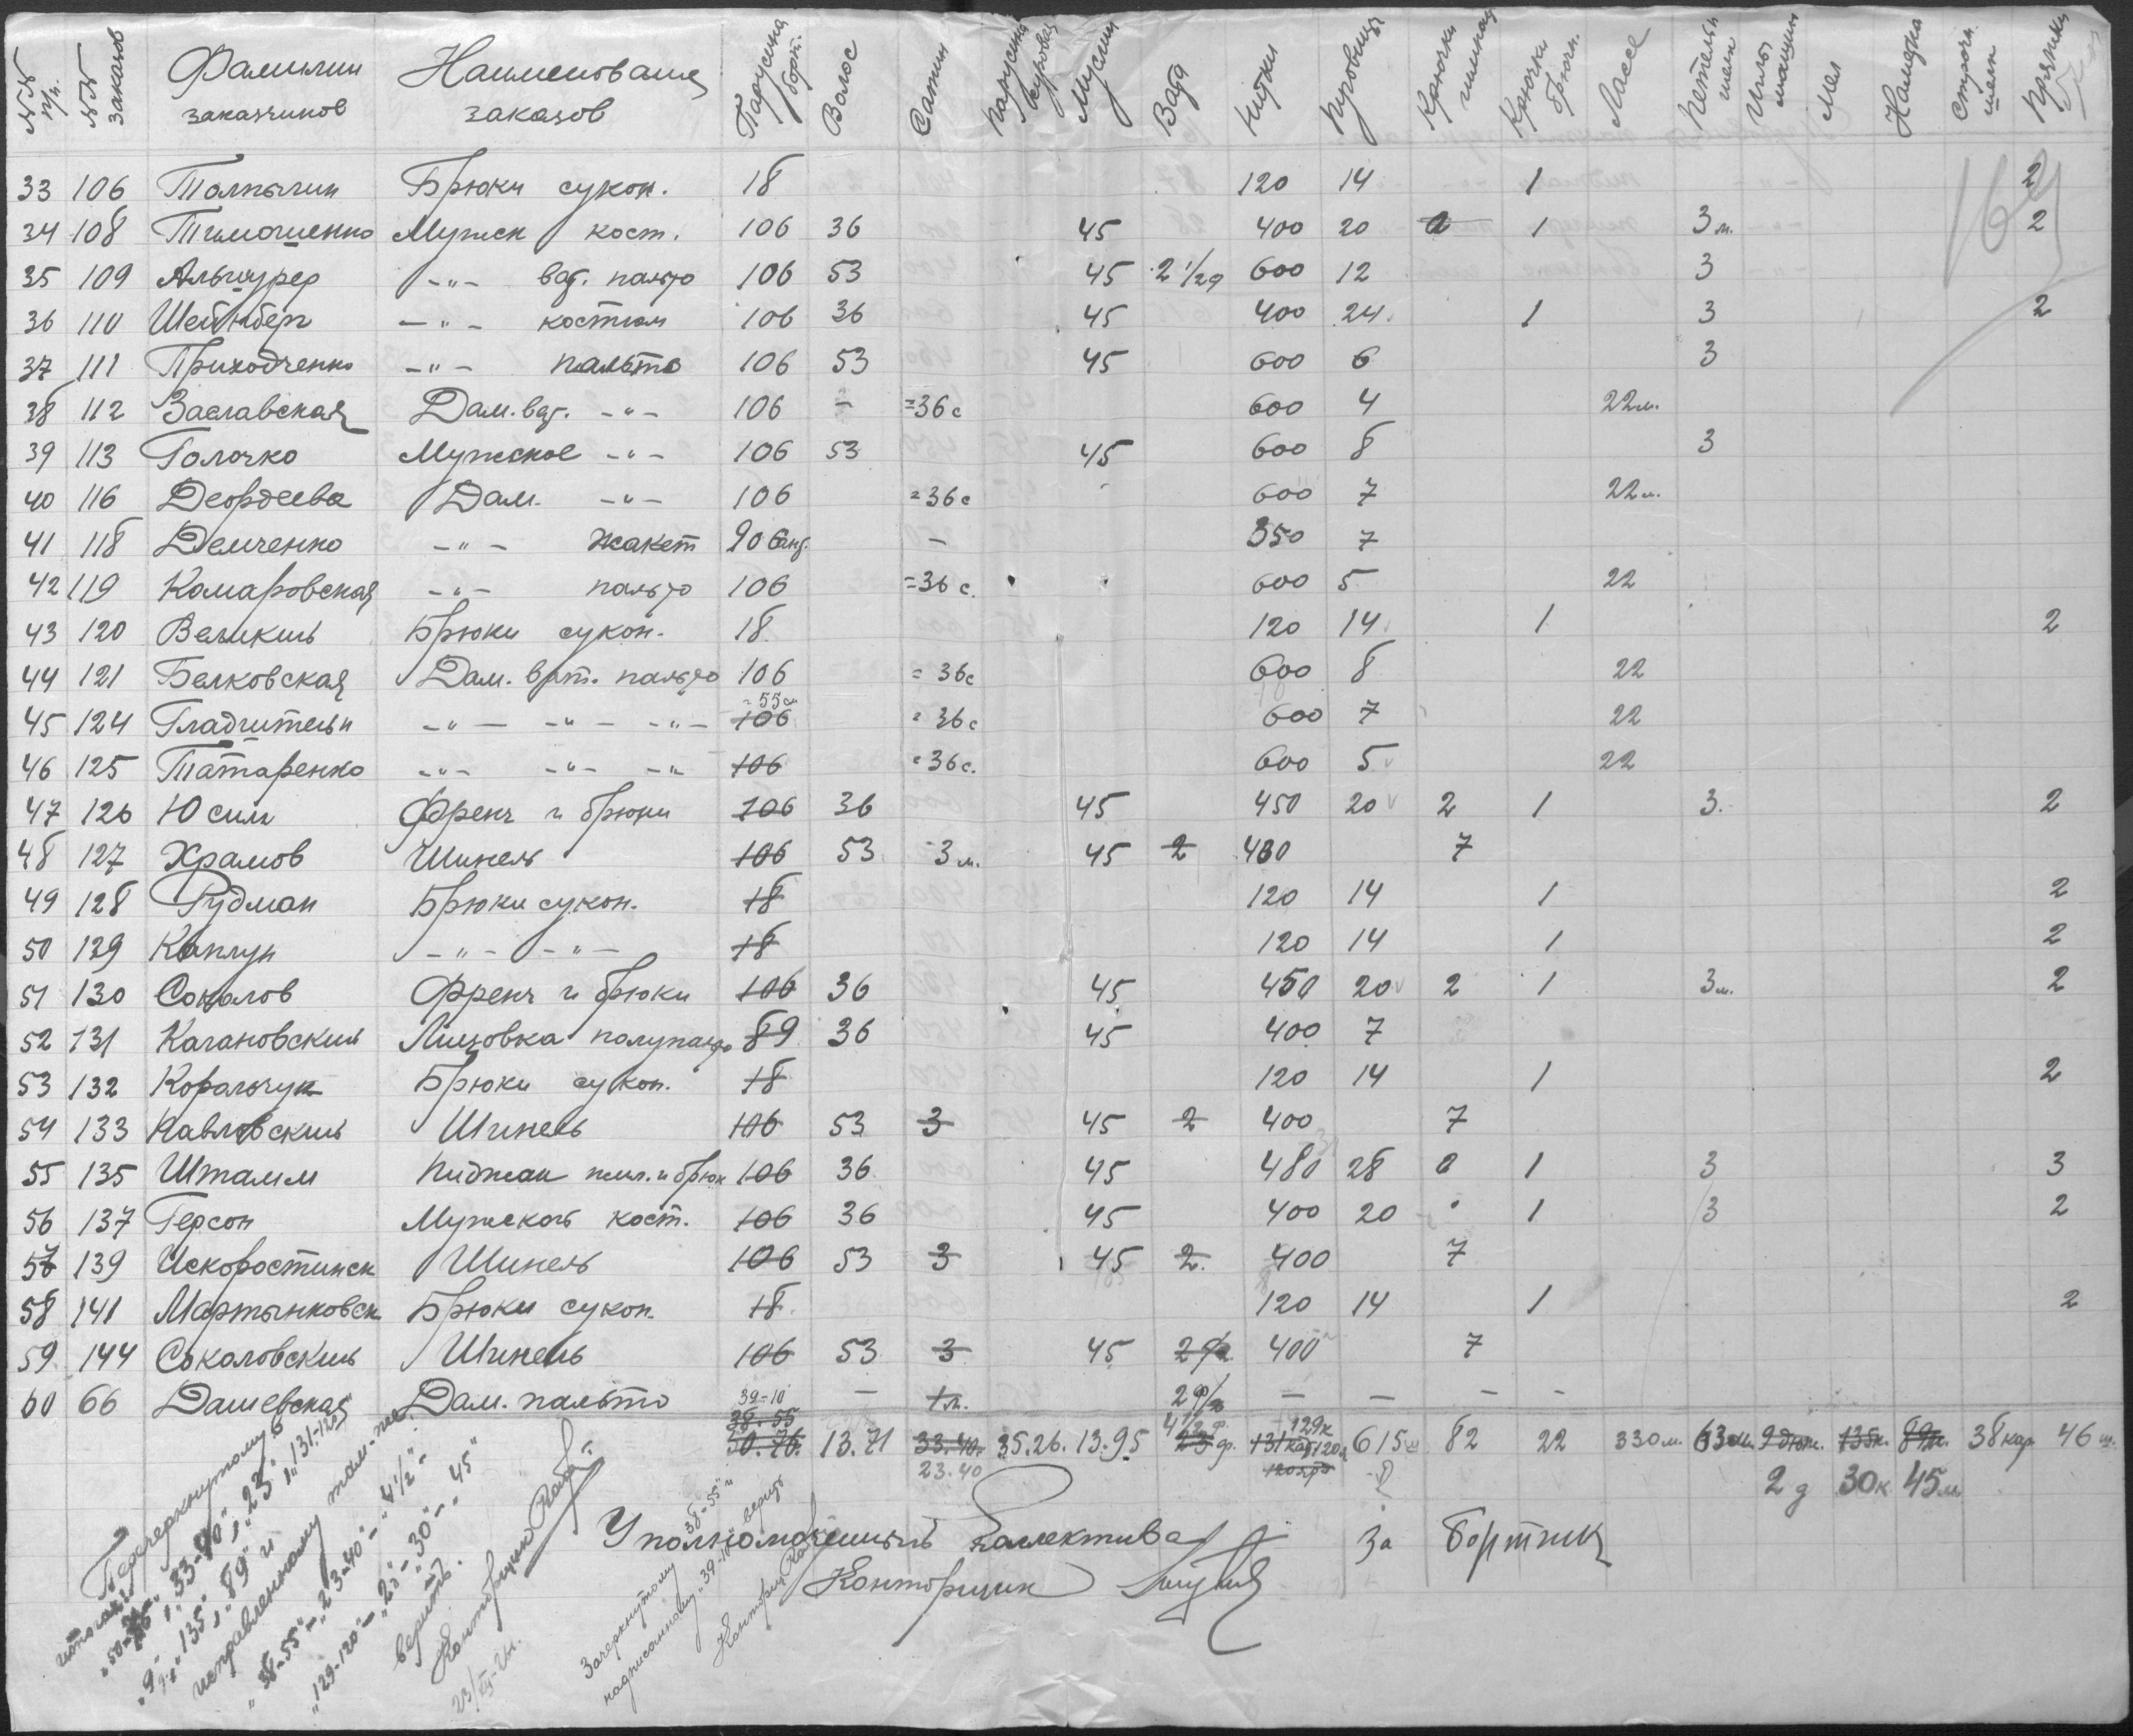 №№ п/п. №№ заказов Фамилии заказчиков Наименование заказов Парусина борт. Волос Сатин Парусина суровая Муслин Вата Нитки Пуговицы Крючки шинел. Крючки брючн. Лассе Петельн шелк Иглы машин Мел Наметка Строчн. шелк Пряжки
33 106 Толпыгин Брюки сукон. 18 120 14 1 2
34 108 Тимошенко Мужск кост. 106 36 45 400 20 1 3 м. 2
35 109 Альшурер -"- ват. пальто 106 53 45 2 1/2 ф 600 12 3
36 110 Шейнберг -"- костюм 106 36 45 400 24 1 3 2
37 111 Приходченко -"- пальто 106 53 45 600 6 3
38 112 Заславская Дам. ват. -"- 106 - =36 с 600 4 22 м.
39 113 Голочко Мужское -"- 106 53 45 600 8 3
40 116 Деордиева Дам. -"- 106 =36 с 600 7 22 м.
41 118 Демченко -"- жакет 90 - 350 7
42 119 Комаровская -"- пальто 106 =36 с. 600 5 22
43 120 Великий Брюки сукон. 18 120 14 1 2
44 121 Белковская Дам. ват. пальто 106 =36 с 600 8 22
45 124 Гладштейн -"- -"- -"- 106 =55 см =36 с 600 7 22
46 125 Татаренко -"- -"- -"- 106 =36 с. 600 5 22
47 126 Юсим Френч и брюки 106 36 45 450 20 2 1 3 2
48 127 Храмов Шинель 106 53 3 м. 45 2 400 7
49 128 Рудман Брюки сукон. 18 120 14 1 2
50 129 Каплун -"- -"- 18 120 14 1 2
51 130 Соколов Френч и брюки 106 36 45 450 20 2 1 3 м. 2
52 131 Кагановский Лицовка полупальто 89 36 45 400 7
53 132 Ковальчук Брюки сукон. 18 120 14 1 2
54 133 Павловский Шинель 106 53 3 45 2 400 7
55 135 Штамм Пиджак жил. и брюк 106 36 45 480 28 1 3 3
56 137 Герсон Мужской кост. 106 36 45 400 20 1 3 2
57 139 Искоростинск Шинель 106 53 3 45 2 400 7
58 141 Мартынковск Брюки сукон. 18 120 14 1 2
59 144 Соколовский Шинель 106 53 3 45 2 400 7
60 66 Дашевская Дам. пальто - 1 м. 2 ф - - - -
39-10
38.55
50.76. 13.71 33.40. 35.26. 13.95 4 1/2 ф. 23 ф. 129 к 120 131 615 82 22 330 м. 63 9 дюж. 135 к. 89 м. 38 кар 46 ш.
23.40 2 д 30 к 45 м
Перечеркнутому в итогах „50-76", „33-40", „23", „131-120", „9", „135", „89" и исправленному там-же „38-55" - „23-40" - „4 1/2" - „129-120" - „2" - „30" - „45" верить.
Конторщик
Зачеркнутому „38-55" и надписанному „39-10" верить
Конторщик
Уполномоченный Коллектива
За Бортник
Конторщик